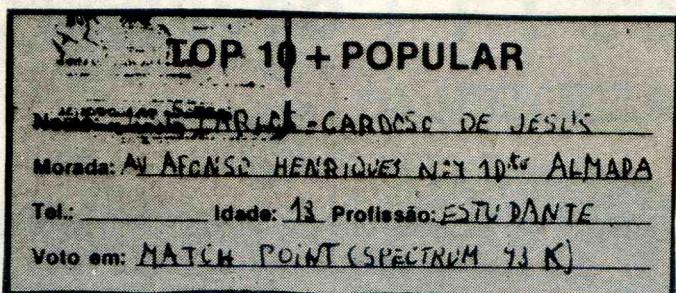 TOP 10 + POPULAR
CARLOS - CARDOSO DE JESUS
Morada: AV AFONSO HENRIQUES ALMADA
Tel.: Idade: 13 Profissão: ESTUDANTE
Voto em: MATCH POINT (SPECTRUM K)